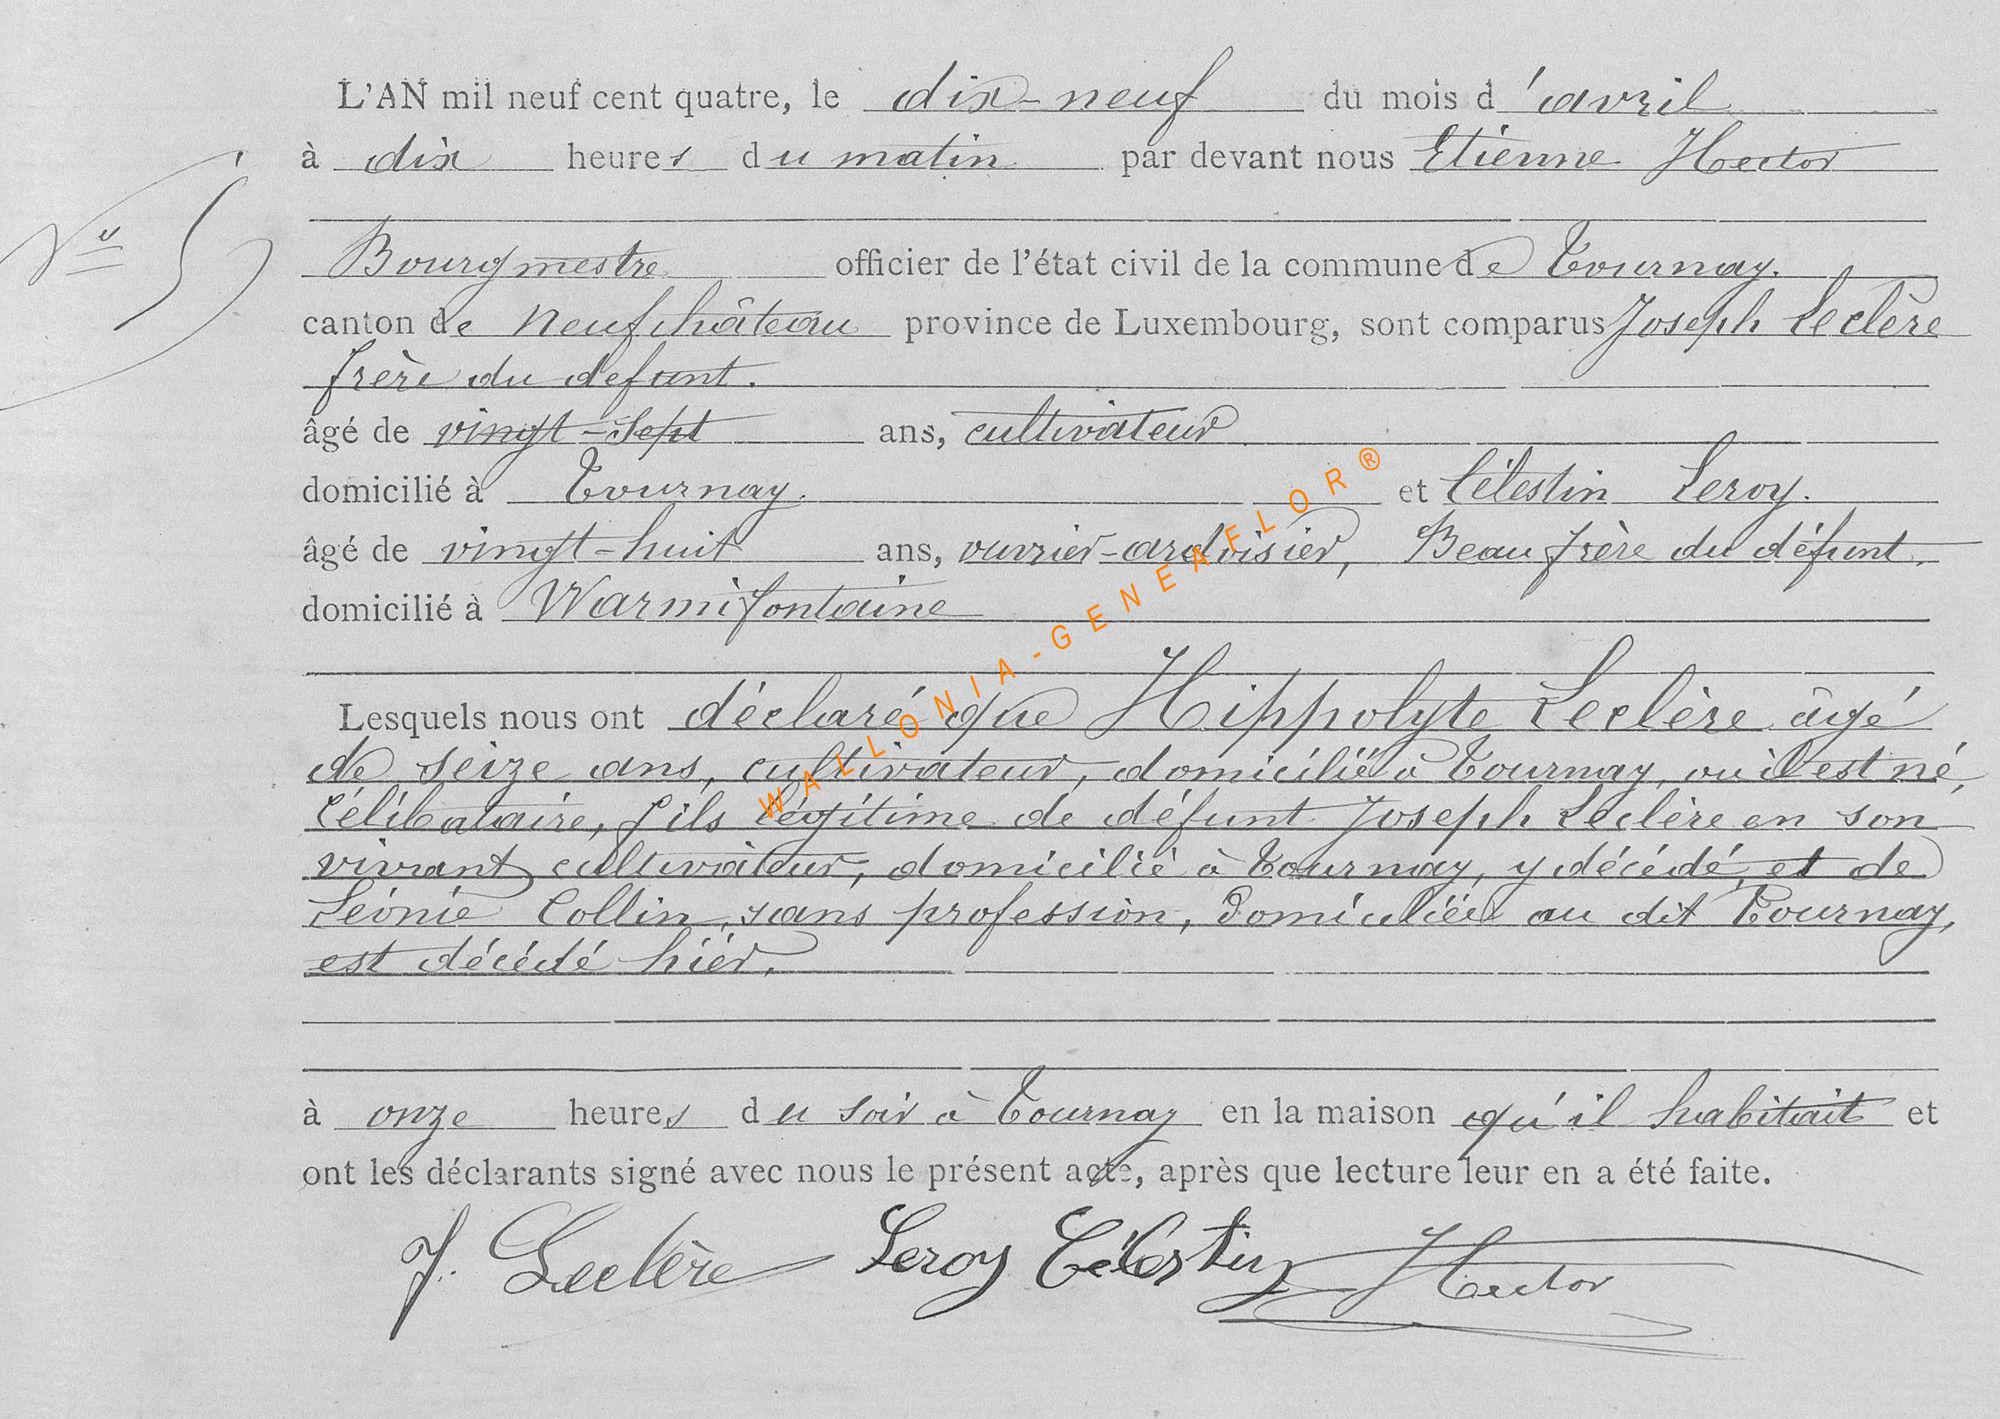 L'AN mil neuf cent quatre, le dix-neuf du mois d'avril
à dix heures du matin par devant nous Etienne Hector
N° 5
Bourgmestre officier de l'état civil de la commune de Tournay.
canton de Neufchâteau province de Luxembourg, sont comparus Joseph Leclère
frère du defunt.
âgé de vingt-sept ans, cultivateur
domicilié à Tournay. et Célestin Leroy.
âgé de vingt-huit ans, ouvrier-ardoisier, Beau frère du défunt.
domicilié à Warmifontaine
Lesquels nous ont déclaré que Hippolyte Leclère âgé
de seize ans, cultivateur, domicilié à Tournay, où il est né,
célibataire, fils légitime de défunt Joseph Leclère en son
vivant cultivateur, domicilié à Tournay, y décédé, et de
Léonie Collin, sans profession, domiciliée au dit Tournay,
est décédé hier.
à onze heures du soir à Tournay en la maison qu'il habitait et
ont les déclarants signé avec nous le présent acte, après que lecture leur en a été faite.
J. Leclère Leroy Célestin Hector
WALLONIA-GENEAFLOR®